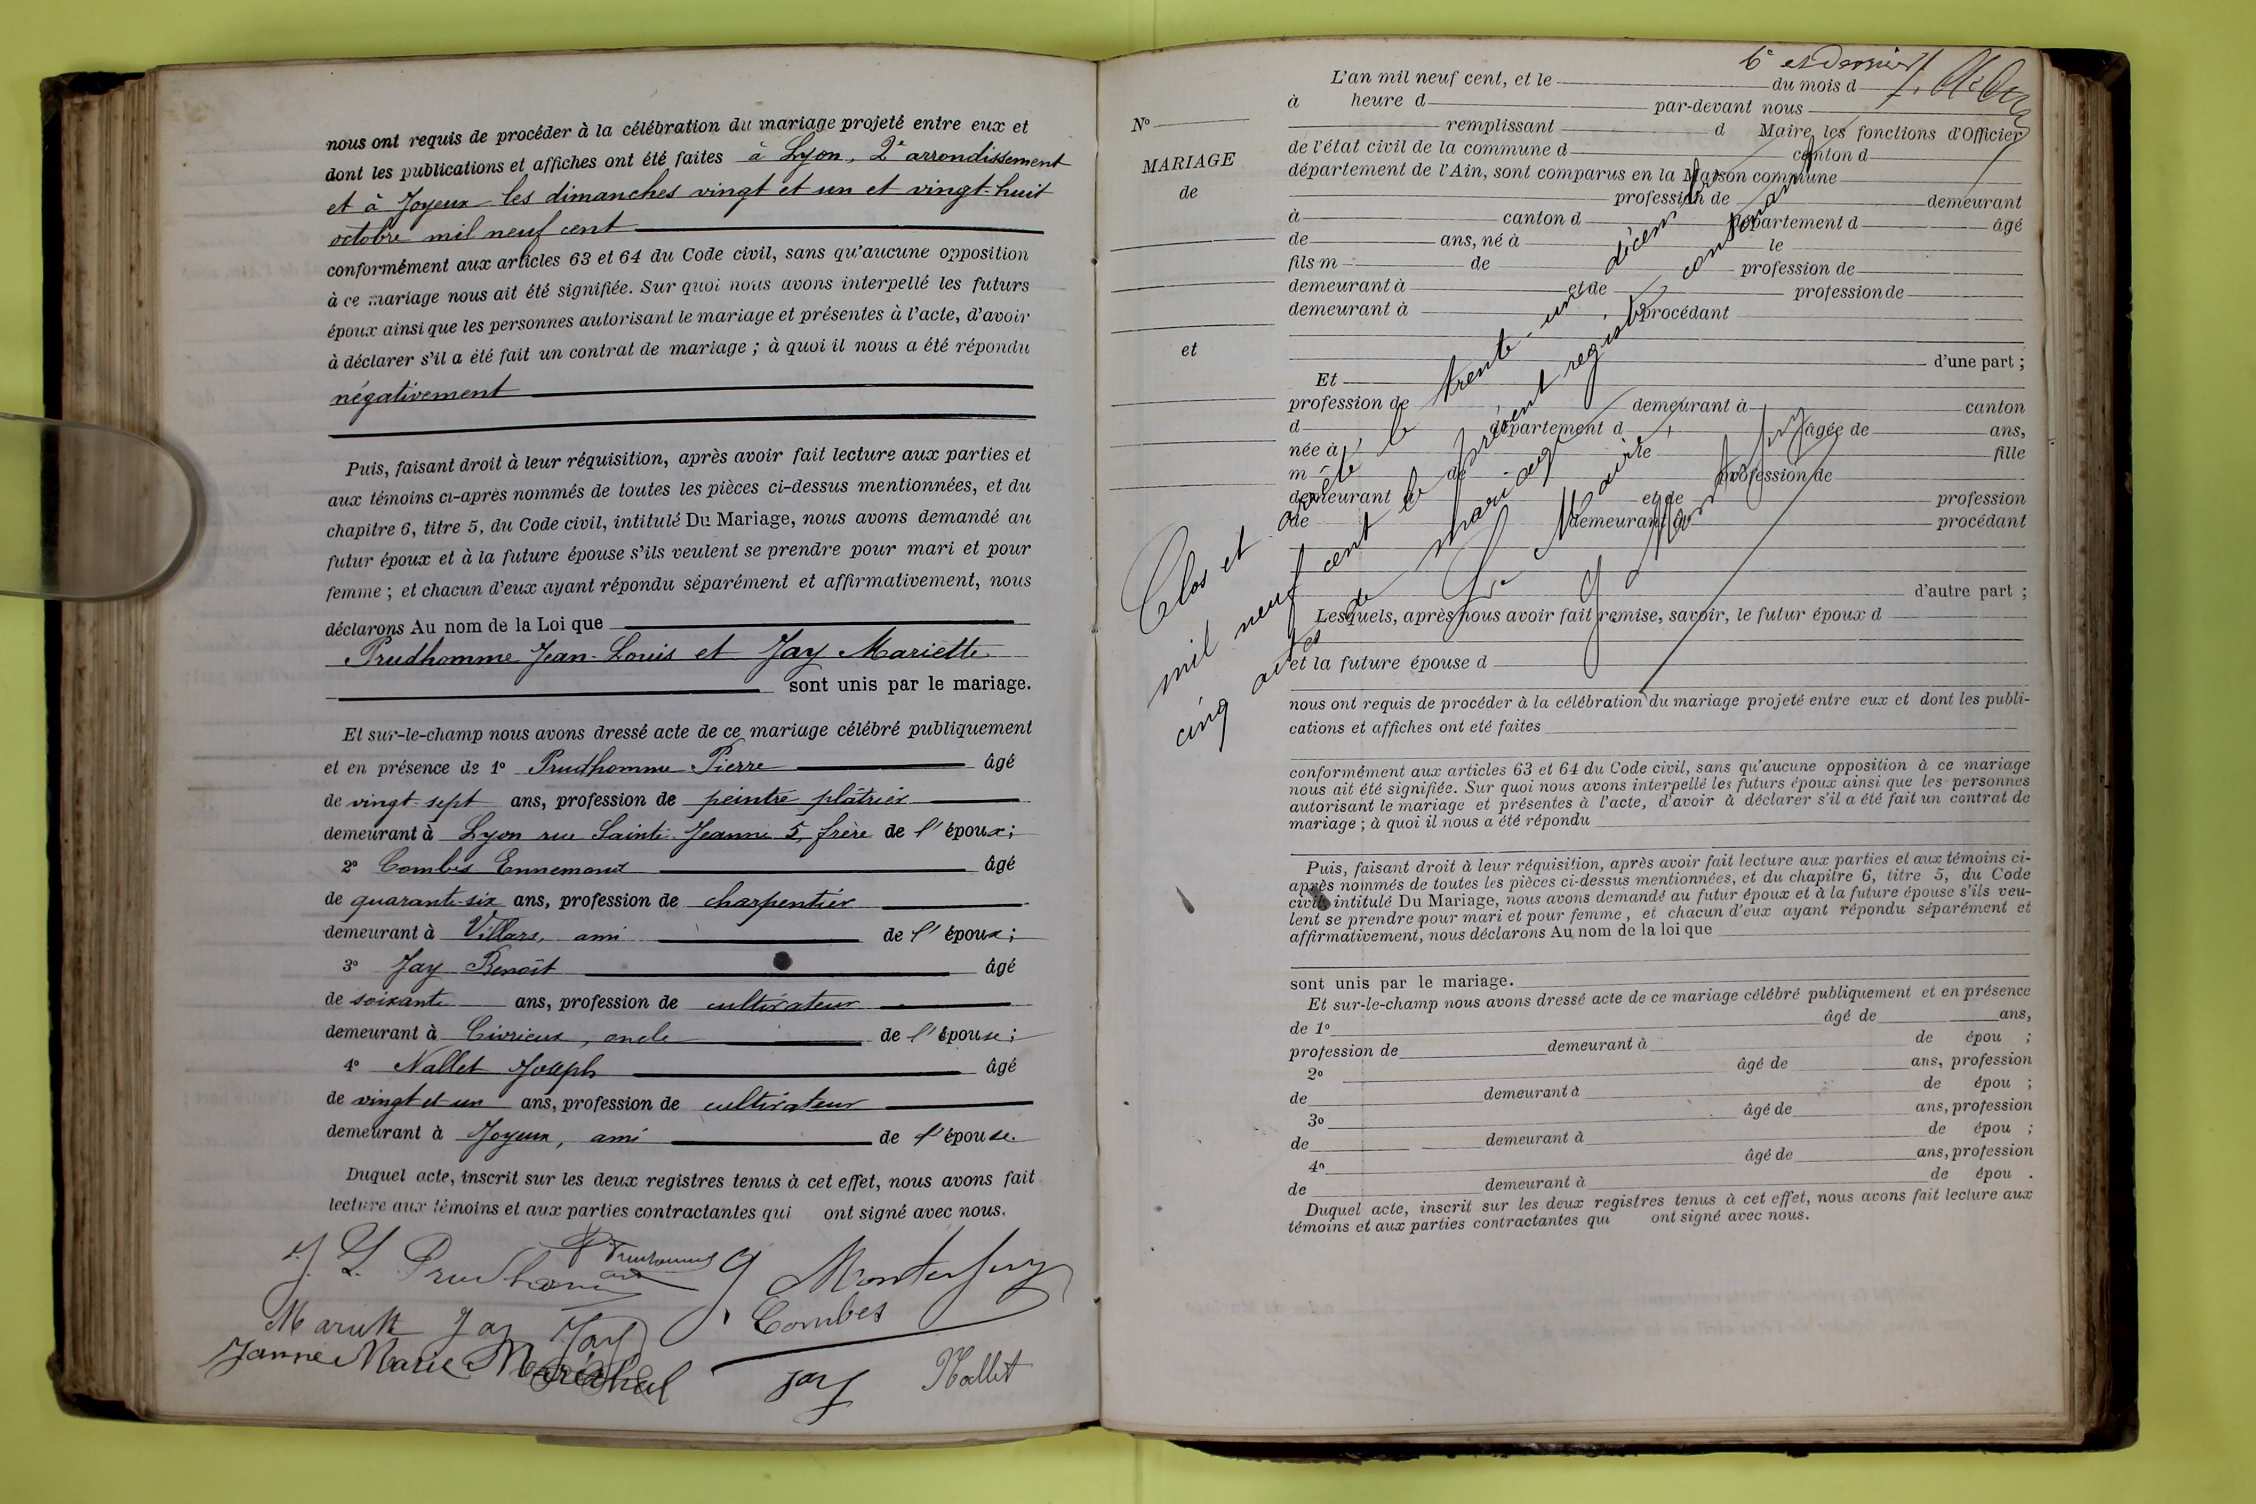 nous ont requis de procéder à la célébration du mariage projeté entre eux et
dont les publications et affiches ont été faites à Lyon, 2e arrondissement
et à Joyeux les dimanches vingt et un et vingt-huit
octobre mil neuf cent
conformément aux articles 63 et 64 du Code civil, sans qu'aucune opposition
à ce mariage nous ait été signifiée. Sur quoi nous avons interpellé les futurs
époux ainsi que les personnes autorisant le mariage et présentes à l'acte, d'avoir
à déclarer s'il a été fait un contrat de mariage ; à quoi il nous a été répondu
négativement
Puis, faisant droit à leur réquisition, après avoir fait lecture aux parties et
aux témoins ci-après nommés de toutes les pièces ci-dessus mentionnées, et du
chapitre 6, titre 5, du Code civil, intitulé Du Mariage, nous avons demandé au
futur époux et à la future épouse s'ils veulent se prendre pour mari et pour
femme ; et chacun d'eux ayant répondu séparément et affirmativement, nous
déclarons Au nom de la Loi que
Prudhomme Jean-Louis et Jay Mariette
sont unis par le mariage.
Et sur-le-champ nous avons dressé acte de ce mariage célébré publiquement
et en présence de 1o Prudhomme Pierre âgé
de vingt-sept ans, profession de peintre plâtrier
demeurant à Lyon rue Sainte-Jeanne 5, frère de l'époux ;
2o Combes Ennemond âgé
de quarante-six ans, profession de charpentier
demeurant à Villars, ami de l'époux ;
3o Jay Benoît âgé
de soixante ans, profession de cultivateur
demeurant à Civrieux, oncle de l'épouse ;
4o Nallet Joseph âgé
de vingt et un ans, profession de cultivateur
demeurant à Joyeux, ami de l'épouse.
Duquel acte, inscrit sur les deux registres tenus à cet effet, nous avons fait
lecture aux témoins et aux parties contractantes qui ont signé avec nous.
J. L. Prudhomme P Prudhomme
G Monterfuy
Mariette Jay Jay Combes
Jeanne Marie Maréchal
Jay Nallet
6e et dernier
L'an mil neuf cent, et le du mois d
à heure d par-devant nous
No remplissant d Maire les fonctions d'Officier
de l'état civil de la commune d canton d
MARIAGE
département de l'Ain, sont comparus en la Maison commune
de
profession de demeurant
à canton d département d âgé
de ans, né à le
fils m de profession de
demeurant à et de profession de
demeurant à procédant
et
d'une part ;
Et
profession de demeurant à canton
d département d âgée de ans,
née à le fille
m de profession de
demeurant à et de profession
de demeurant à procédant
d'autre part ;
Lesquels, après nous avoir fait remise, savoir, le futur époux d
et la future épouse d
Clos et arrêté le trente-un décembre
mil neuf cent le présent registre consacrant
cinq actes de mariage
Le Maire,
G Monterfuy
nous ont requis de procéder à la célébration du mariage projeté entre eux et dont les publi-
cations et affiches ont eté faites
conformément aux articles 63 et 64 du Code civil, sans qu'aucune opposition à ce mariage
nous ait été signifiée. Sur quoi nous avons interpellé les futurs époux ainsi que les personnes
autorisant le mariage et présentes à l'acte, d'avoir à déclarer s'il a été fait un contrat de
mariage ; à quoi il nous a été répondu
Puis, faisant droit à leur réquisition, après avoir fait lecture aux parties et aux témoins ci-
après nommés de toutes les pièces ci-dessus mentionnées, et du chapitre 6, titre 5, du Code
civil, intitulé Du Mariage, nous avons demandé au futur époux et à la future épouse s'ils veu-
lent se prendre pour mari et pour femme, et chacun d'eux ayant répondu séparément et
affirmativement, nous déclarons Au nom de la loi que
sont unis par le mariage.
Et sur-le-champ nous avons dressé acte de ce mariage célébré publiquement et en présence
de 1o âgé de ans,
profession de demeurant à de épou ;
2o âgé de ans, profession
de demeurant à de épou ;
3o âgé de ans, profession
de demeurant à de épou ;
4o âgé de ans, profession
de demeurant à de épou .
Duquel acte, inscrit sur les deux registres tenus à cet effet, nous avons fait lecture aux
témoins et aux parties contractantes qui ont signé avec nous.